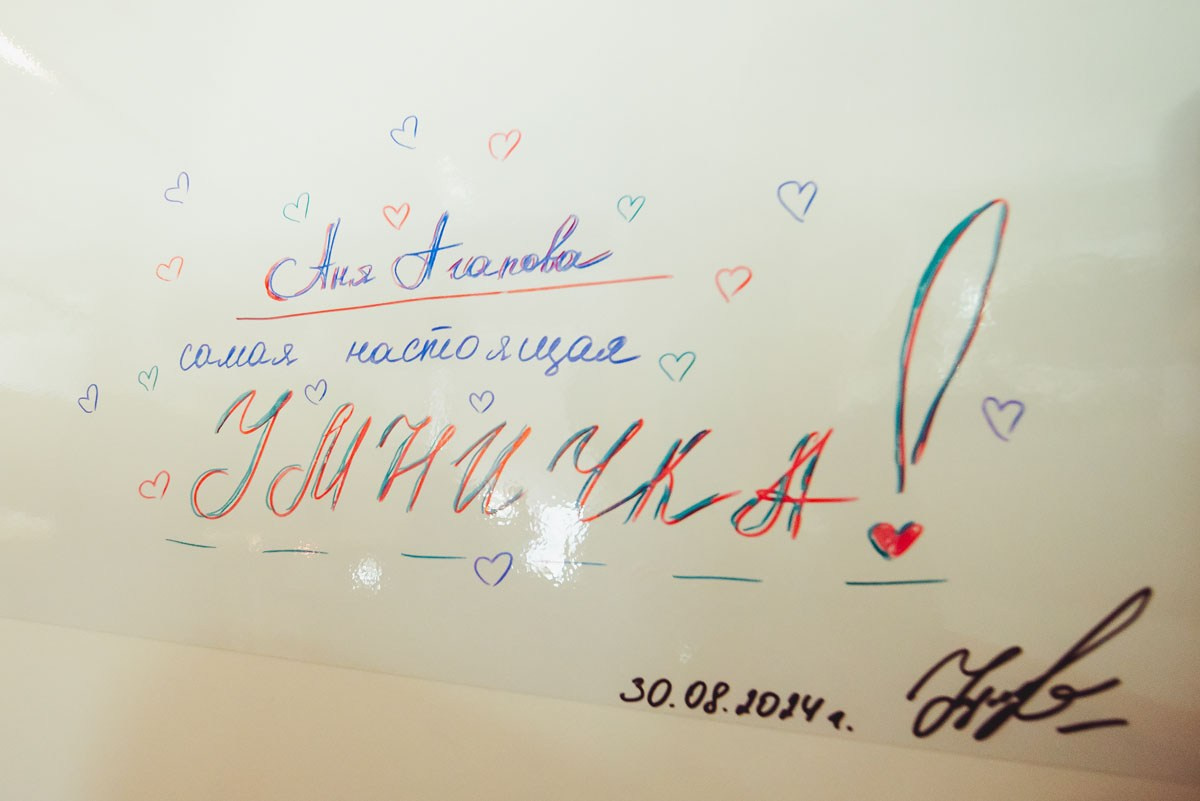 Аня Агапова
самая настоящая
УМНИЧКА!
30.08.2024 г.